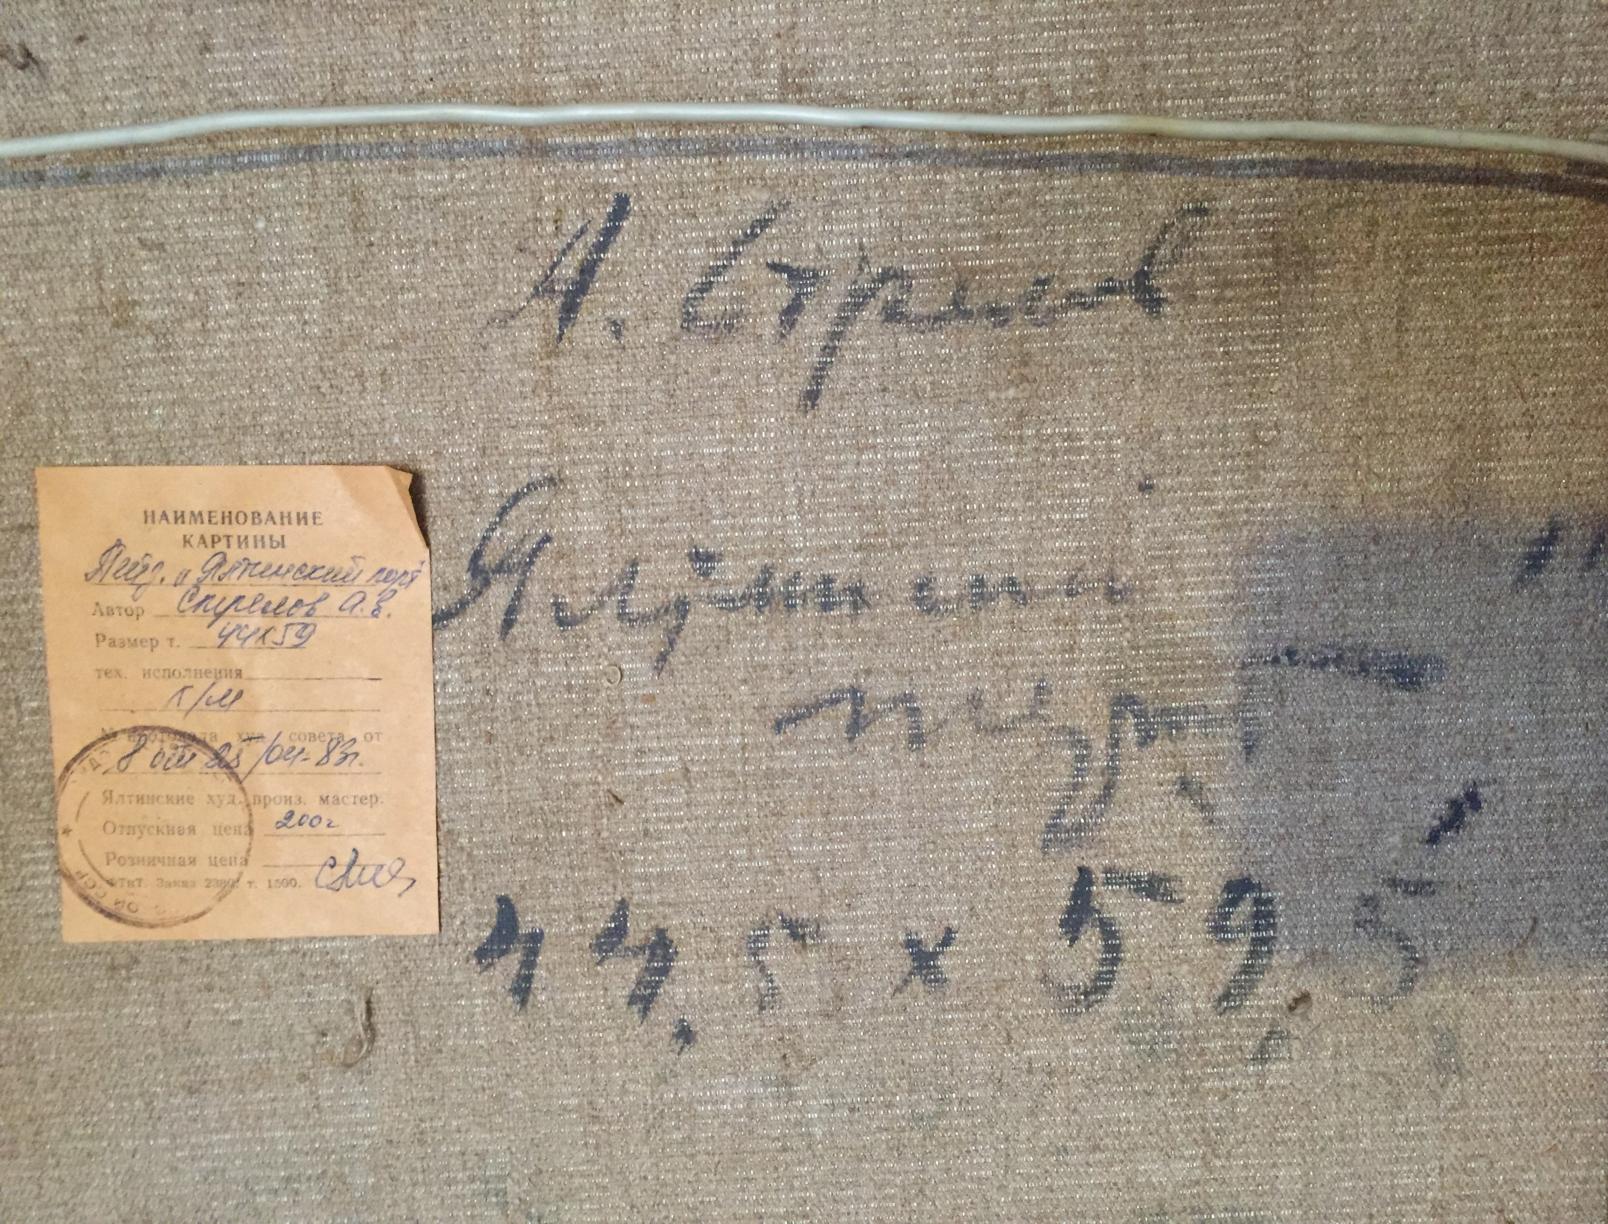 А. Стрелов
Ялтинский
порт
44,5 х 59,5
НАИМЕНОВАНИЕ
КАРТИНЫ
Пейз. „Ялтинский порт
Автор Стрелов А.Е.
Размер т. 44х59
тех. исполнения
х/м
№ протокола худ. совета от
8 от 25/04-83г.
Ялтинские худ. произ. мастер.
Отпускная цена 200=
Розничная цена
ФТиТ. Заказ 2380. т. 1500.